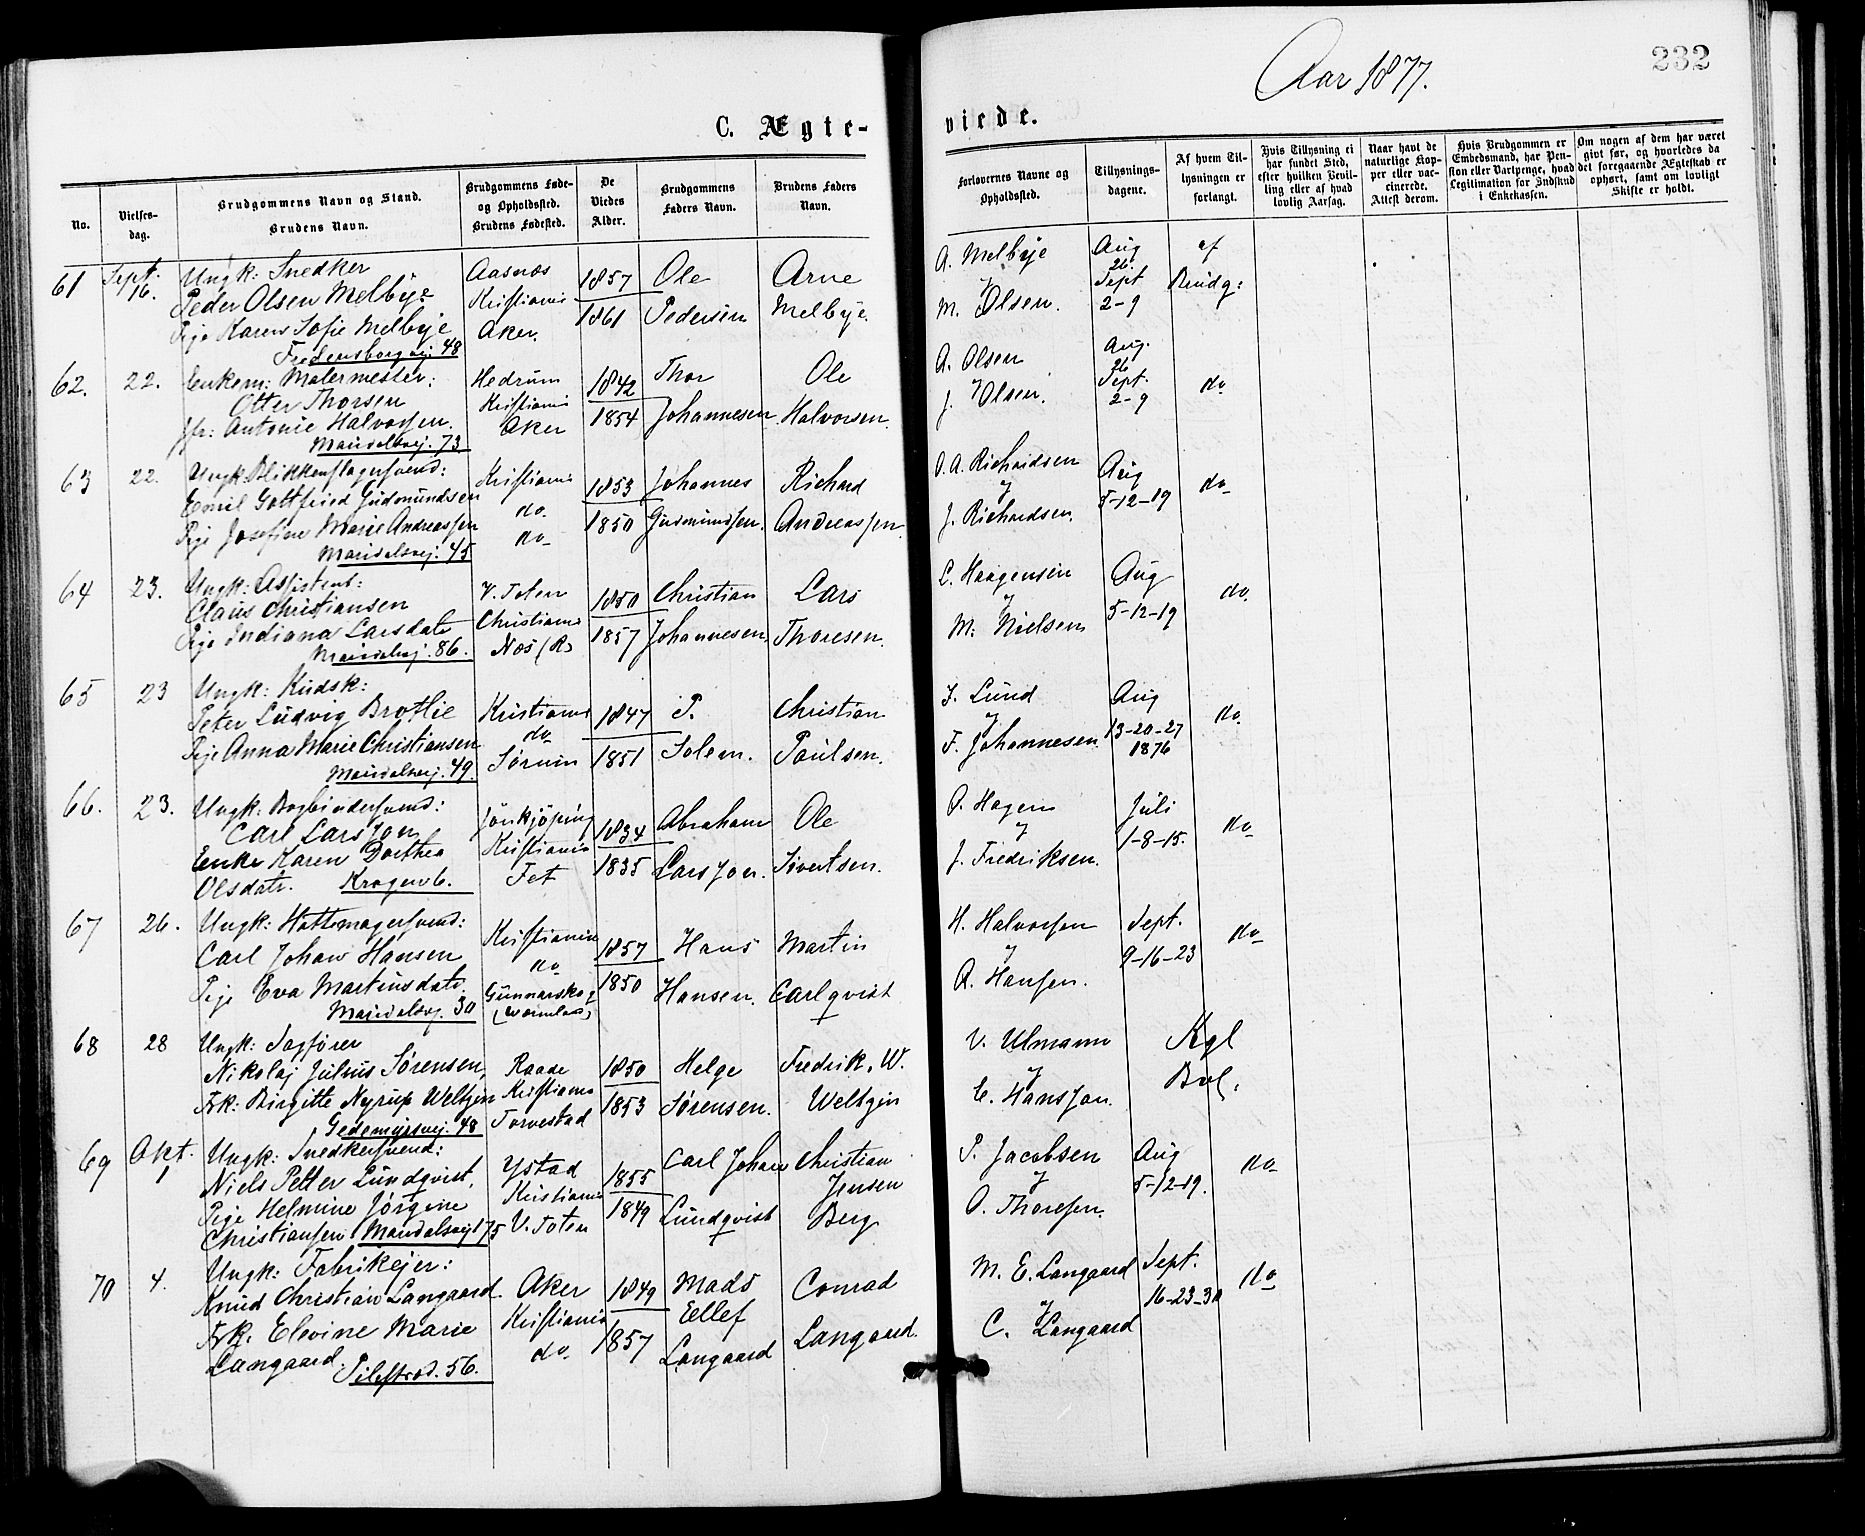 Aar 1877.
232
C. Ægte-
viede.
No.
Vielses-
dag.
Brudgommens Navn og Stand.
Brudens Navn.
Brudgommens Føde-
og Opholdssted.
Brudens Fødested.
De
Viedes
Alder.
Brudgommens
Faders Navn.
Brudens Faders
Navn.
Forlovernes Navne og
Opholdssted.
Tillysnings-
dagene.
Af hvem Til-
lysningen er
forlangt.
Hvis Tillysning ei
har fundet Sted,
efter hvilken Bevil-
ling eller af hvad
lovlig Aarsag.
Naar havt de
naturlige Kop-
per eller vac-
cinerede.
Attest derom.
Hvis Brudgommen er
Embedsmand, har Pen-
sion eller Vartpenge, hvad
Legitimation for Indskud
i Enkekassen.
Om nogen af dem har været
givt før, og hvorledes da
det foregaaende Ægteskab er
ophørt, samt om lovligt
Skifte er holdt.
61 Sept. 16. Ungk: Snedker Aasnæs 1857 Ole Arne A. Melbye Aug 26. af
Peder Olsen Melbye Kristiania Sept Brudg:
Pige Karen Sofie Melbye Aker. 1861 Pedersen Melbye. M. Olsen. 2-9
Fredensborgvej: 48
62. 22. Enkem: Malermester: Hedrum 1842 Thor Ole A. Olsen Aug. 26
Otter Thorsen Kristiania Sept. do
Jfr: Antonie Halvorsen. Aker 1854 Johannesen Halvorsen. J. Olsen. 2-9
Maridalsvej. 73
63 22. Ungk. Blikkenslagersvend: Kristiania 1853 Johannes Richard O. A. Richardsen Aug
Emil Gottfried Gudmundsen do. 5-12-19 do
Pige Josefine Marie Andreassen do 1850 Gudmundsen. Andreassen J. Richardsen.
Maridalsvej. 45
64 23. Ungk: Assistent: V. Toten 1850 Christian Lars L. Haagensen Aug
Claus Christiansen Christiania 5-12-19 do.
Pige Indiana Larsdatr Næs (R) 1857 Johannesen Thoresen. M. Nielsen
Maridalsvej. 86.
65 23 Ungk: Kudsk: Kristiania 1847 P. Christian J. Lund Aug
Peter Ludvig Brotlie do 13-20-27 do.
Pige Anna Marie Christiansen Sørum 1851 Solem. Paulsen. F. Johannesen 1876
Maridalsvej. 49.
66. 23. Ungk: Bogbindersvend: Jönkjöping 1834 Abraham Ole O. Hagen Juli
Carl Larsson Kristiania 1-8-15. do
Enke Karen Dorthea Fet 1835 Larsson. Sivertsen. J. Fredriksen.
Olsdatr. Kragenb.
67 26. Ungk: Hattemagersvend: Kristiania 1857 Hans Martin H. Halvorsen Sept.
Carl Johan Hansen do 9-16-23 do
Pige Eva Martinsdatr. Gunnarskog 1850 Hansen. Carlqvist A. Hansen.
Maridalsvj. 30
68 28 Ungk: Sagfører Raade 1850 Helge Fredrik, W. V. Ulmann Kgl
Nikolaj Julius Sørensen, Kristiania
Frk: Birgitte Nyrup Weltzin Torvestad 1853 Sørensen. Weltzin E. Hansson. Bvl.
Gedemyrsvej. 48
69 Okt. 1 Ungk: Snedkersvend: Ystad 1855 Carl Johan Christian P. Jacobsen Aug
Niels Petter Lundqvist, Kristiania Jensen 5-12-19. do
Pige Helmine Jørgine V. Toten 1849 Lundqvist Berg O. Thoresen.
Christiansen Maridalsvej 175
70 4. Ungk: Fabrikejer: Aker 1849 Mads Conrad M. E. Langaard Sept.
Knud Christian Langaard. Kristiania Ellef 16-23-30 do
Frk. Elevine Marie do. 1857 Langaard Langaard. C. Langaard
Langaard. Pilestræd. 56.